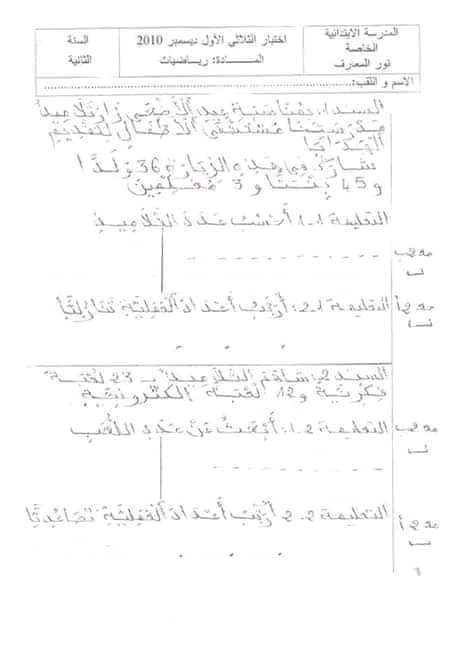 المدرسة الابتدائية
الخاصة
نور المعارف
اختبار الثلاثي الأول ديسمبر 2010
المــــادة: رياضيات
السنة
الثانية
الاسم و اللقب:
السند 1: بمناسبة عيد الأضحى زار تلاميذ
مدرستنا مستشفى الأطفال لتقديم
الهدايا
شارك في هذه الزيارة 36 ولدًا
و 45 بنتا و 3 معلمين
التعليمة 1.1: أحسب عدد التلاميذ
مع 2ب
التعليمة 1.2: أرتب أعداد الفقلية تنازليّا
مع 2أ
السند 2: ساهم التلاميذ بـ 23 لعبة
فكرية و 12 لعبة إلكترونية
التعليمة 2.1: أبحث عن عدد اللعب
مع 2ب
التعليمة 2.2 أرتب أعداد الفقلية تصاعديّا
مع 2أ
1